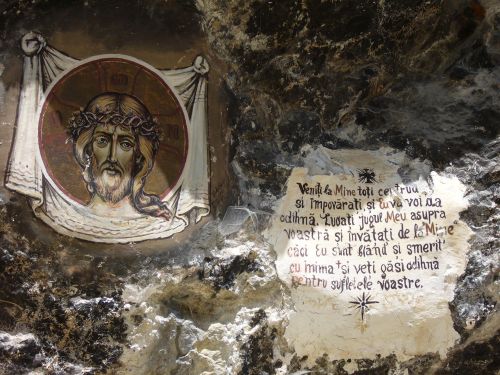 Veniți la Mine toți cei trudiți
și împovărați, și Eu vă voi da
odihnă. Luați jugul Meu asupra
voastră și învățați de la Mine
căci Eu sunt blând și smerit
cu inima și veți găsi odihnă
pentru sufletele voastre.